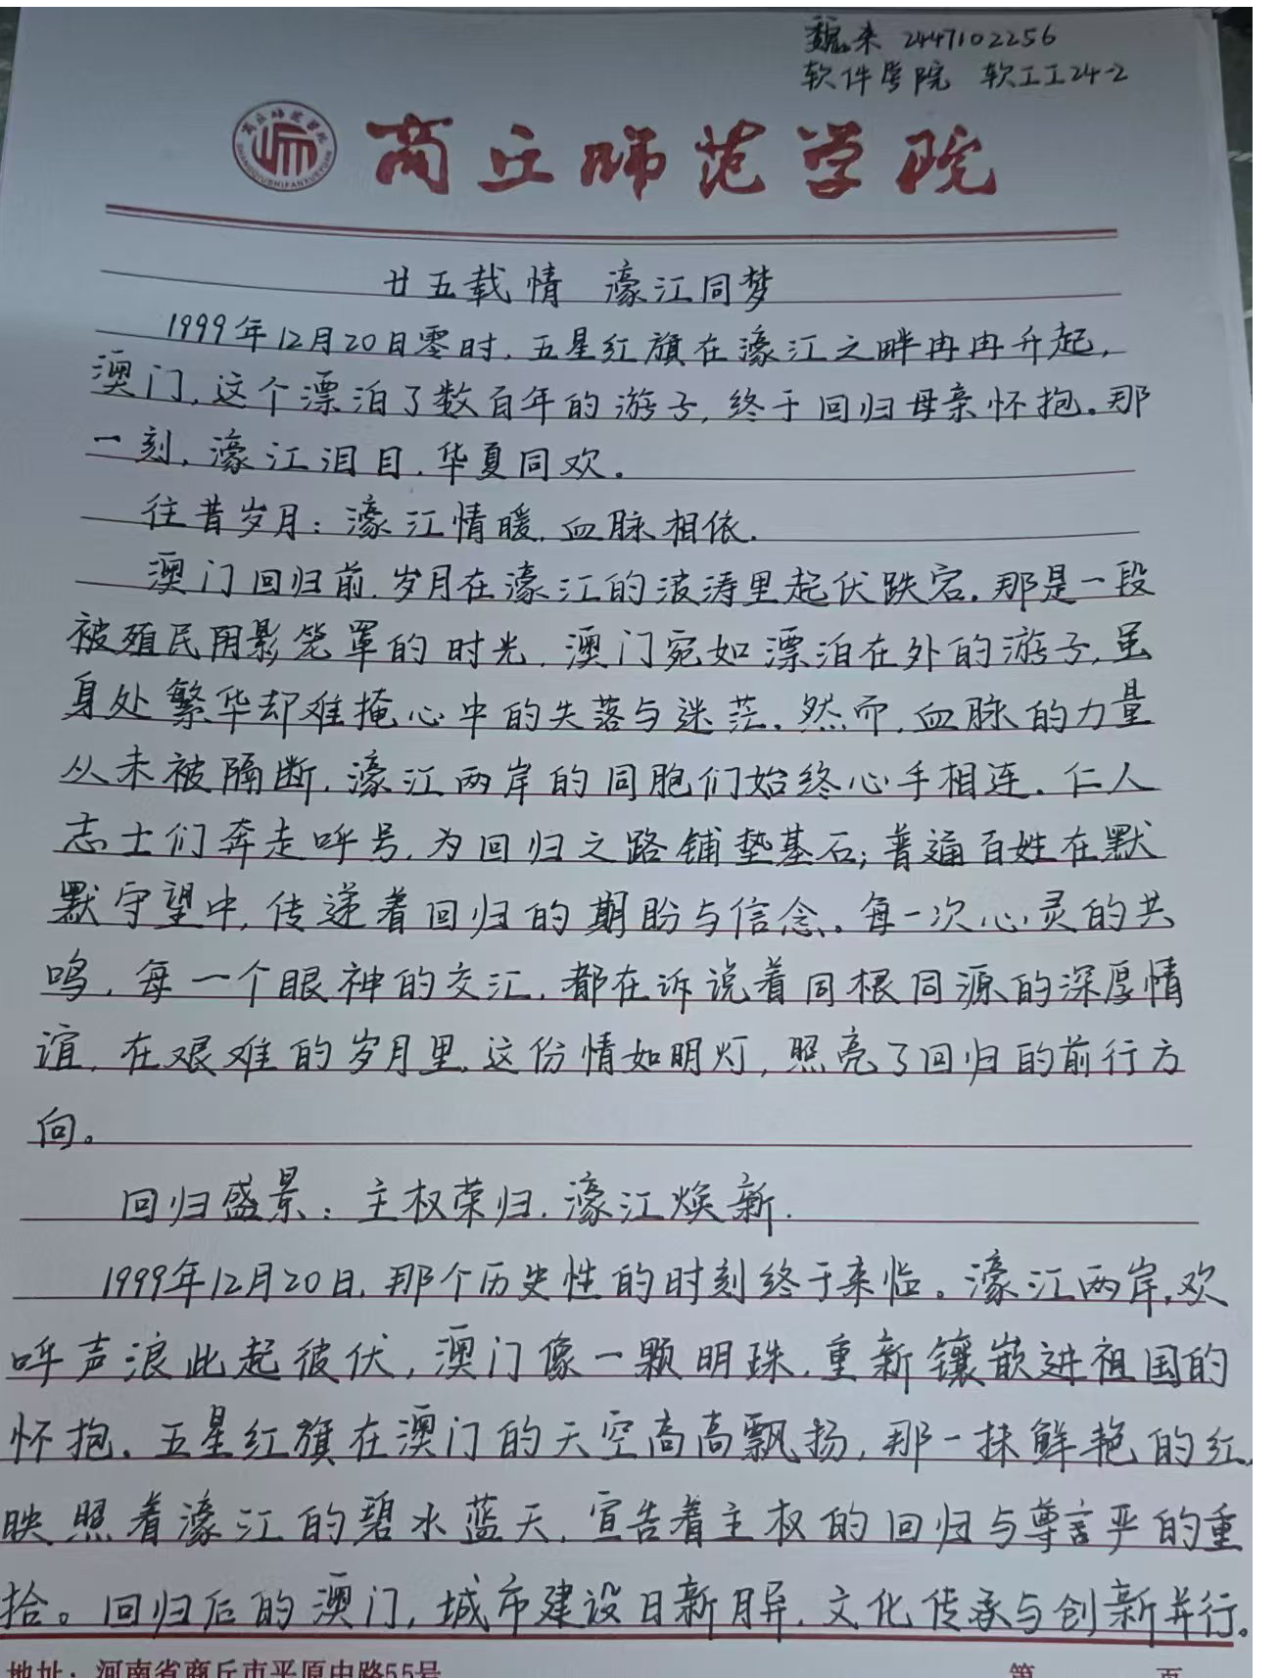 魏来 2447102256
软件学院 软工工24-2
商丘师范学院
廿五载情 濠江同梦
1999年12月20日零时，五星红旗在濠江之畔冉冉升起，
澳门，这个漂泊了数百年的游子，终于回归母亲怀抱。那
一刻，濠江泪目，华夏同欢。
往昔岁月：濠江情暖，血脉相依.
澳门回归前，岁月在濠江的波涛里起伏跌宕。那是一段
被殖民阴影笼罩的时光，澳门宛如漂泊在外的游子，虽
身处繁华却难掩心中的失落与迷茫。然而，血脉的力量
从未被隔断，濠江两岸的同胞们始终心手相连。仁人
志士们奔走呼号，为回归之路铺垫基石；普通百姓在默
默守望中，传递着回归的期盼与信念。每一次心灵的共
鸣，每一个眼神的交汇，都在诉说着同根同源的深厚情
谊，在艰难的岁月里，这份情如明灯，照亮了回归的前行方
向。
回归盛景：主权荣归，濠江焕新.
1999年12月20日，那个历史性的时刻终于来临。濠江两岸，欢
呼声浪此起彼伏，澳门像一颗明珠，重新镶嵌进祖国的
怀抱。五星红旗在澳门的天空高高飘扬，那一抹鲜艳的红，
映照着濠江的碧水蓝天，宣告着主权的回归与尊严的重
拾。回归后的澳门，城市建设日新月异，文化传承与创新并行。
地址：河南省商丘市平原中路55号 第 页